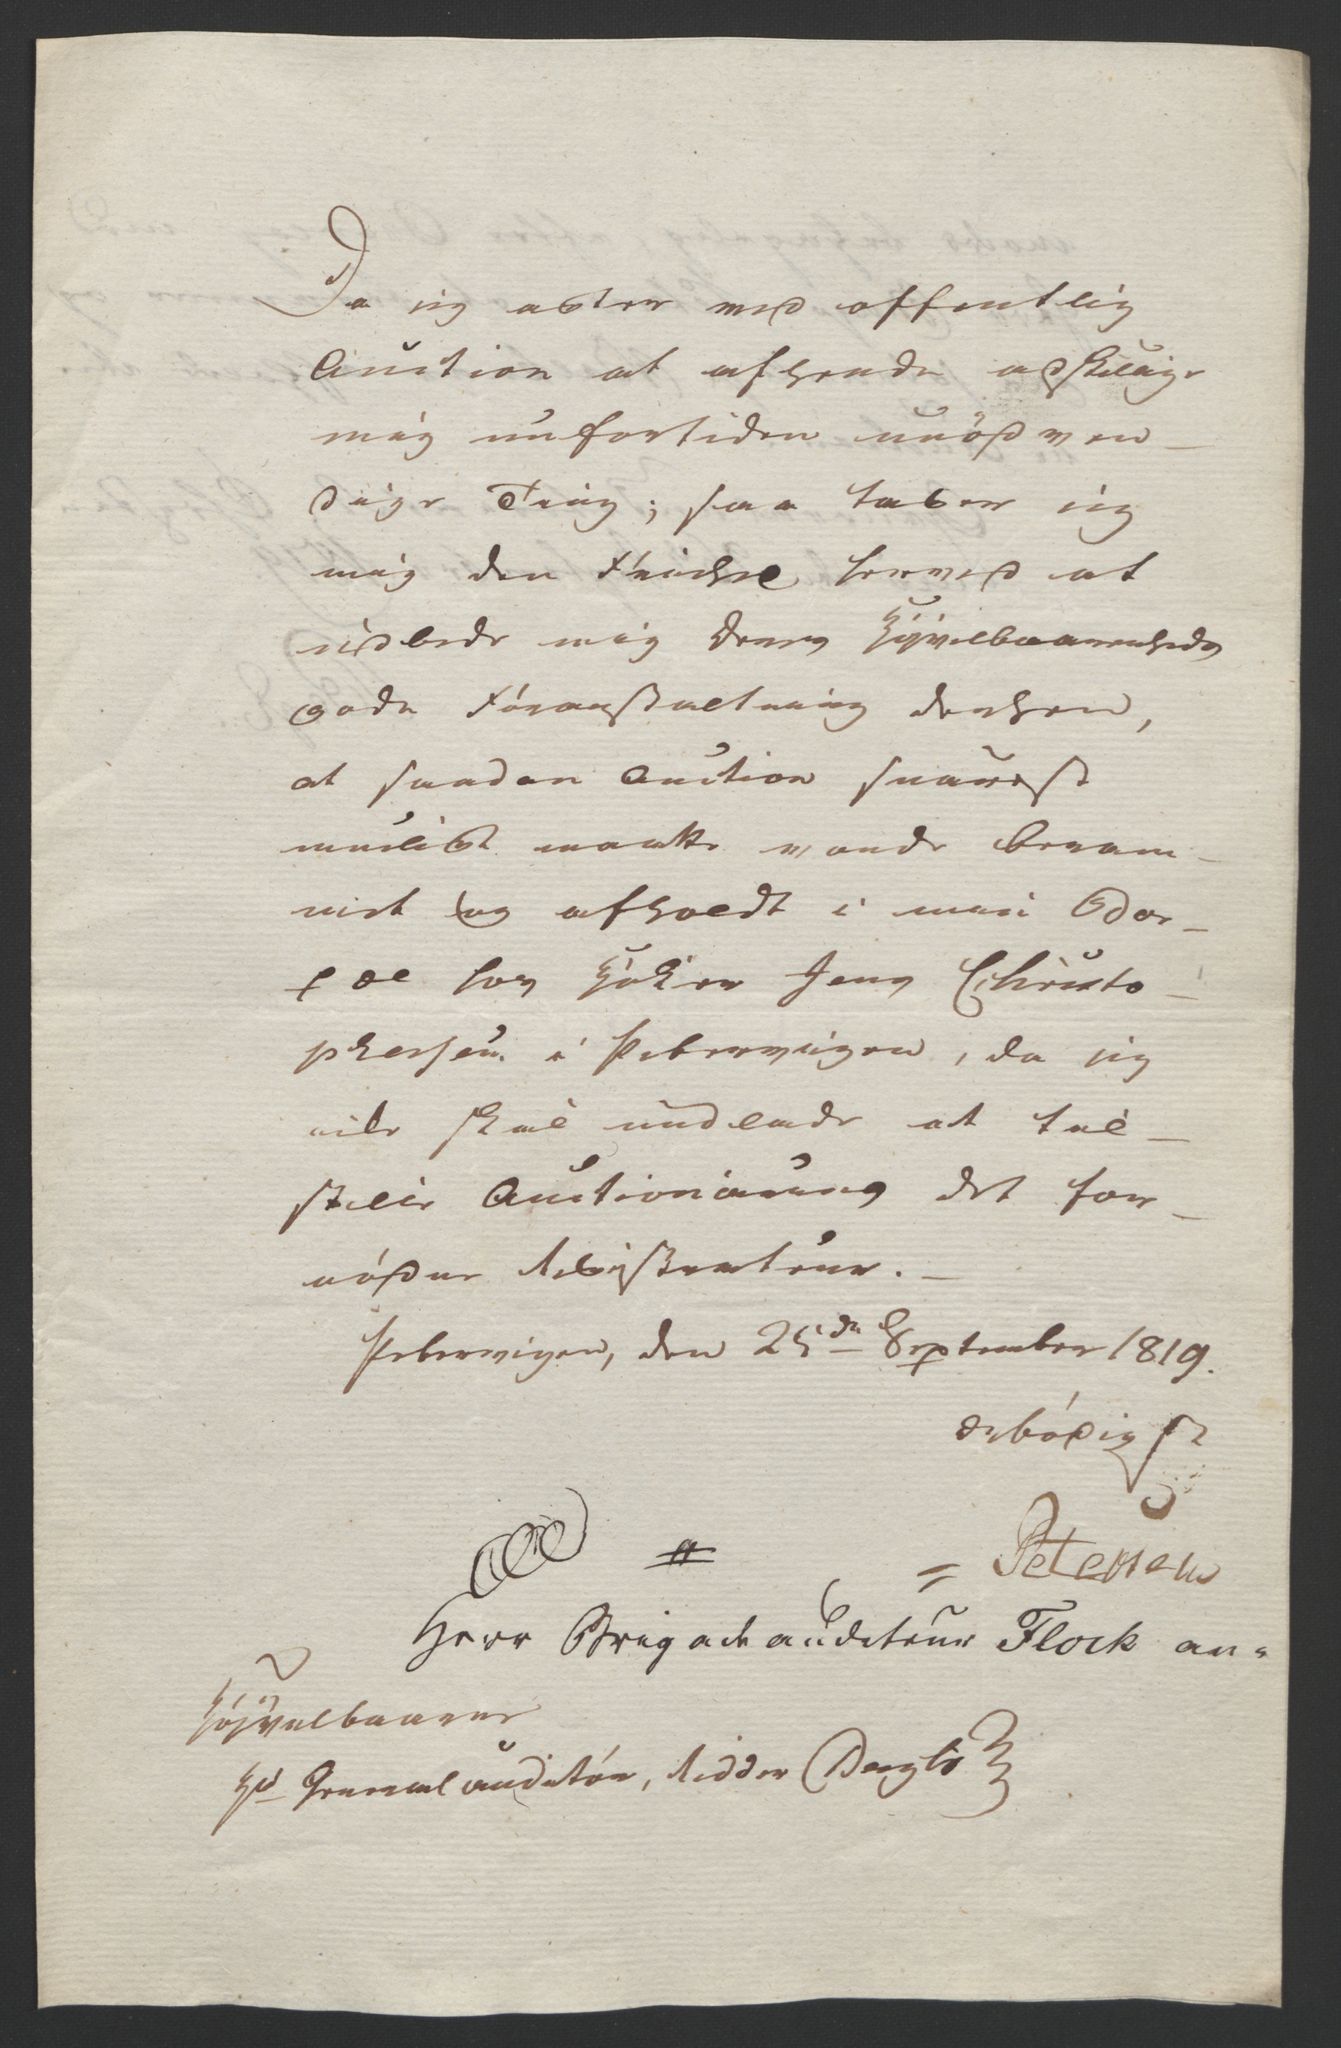 Da jeg agter ved offentlig
Auction at afhænde adskillige
mig nu for tiden unödven-
dige Ting; saa tager jeg
mig den Friehed herved at
udbede mig Deres Höjvelbaarenheds
gode Foranstaltning derhen,
at saadan Auction snarest
muligt maatte vorde beram-
met og afholdt i mit Qvar-
teer hos Höker Jens Christo-
phersen i Pebervigen, da jeg
ikke skal undlade at til-
stille Auctionarius det for-
nödne Registratur.
Pebervigen, den 25de September 1819.
Ærbödigst
Petersen
Herr Brigadeauditeur Flock an-
Höjvelbaarne
Hr Generalauditör, Ridder Bergh